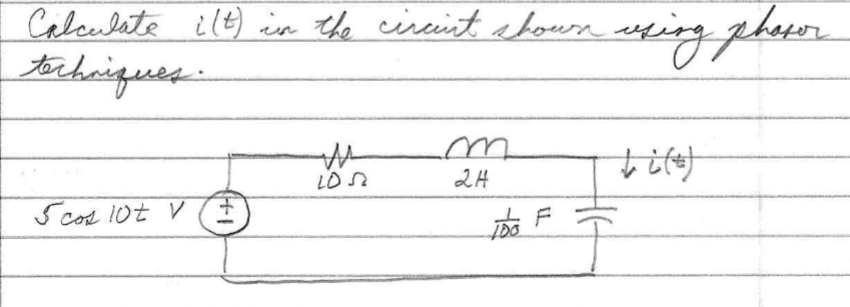 Calculate i(t) in the circuit shown using phasor
techniques.
10 Ω
2H
↓ i(t)
5 cos 10t V
+
−
1/100 F